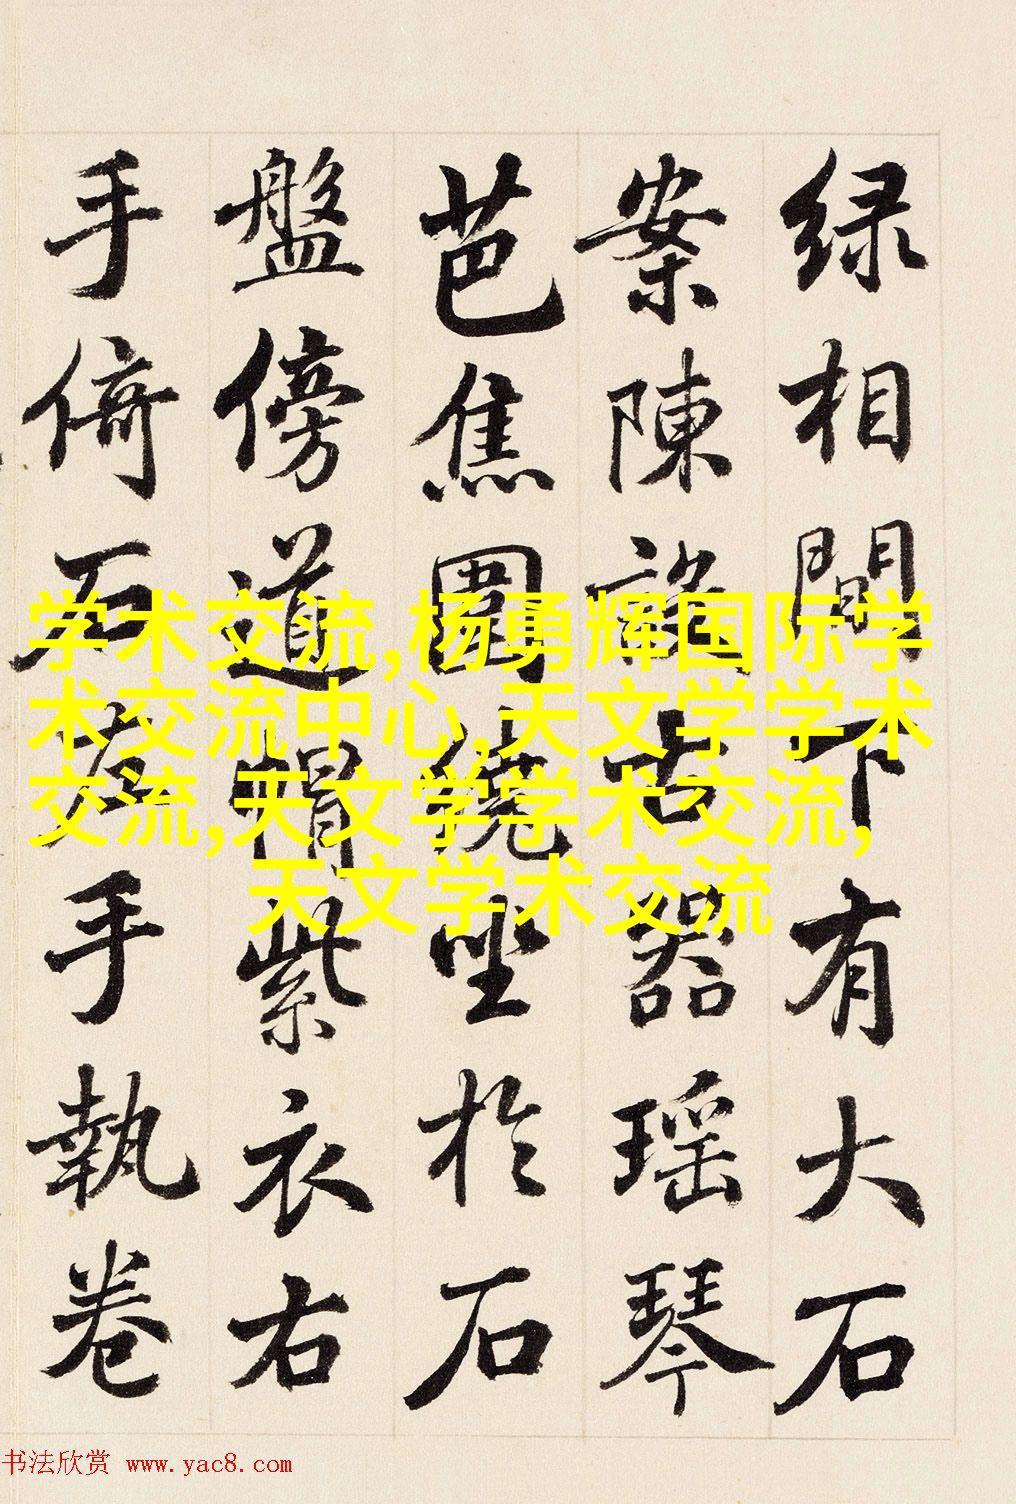 绿相間下有大石
案陳設古器瑶琴
芭焦圍繞坐於石
盤傍道帽紫衣右
手倚石左手執卷
学术交流,杨勇辉国际学
术交流中心,天文学学术
交流,天文学学术交流,
天文学术交流
书法欣赏 www.yac8.com